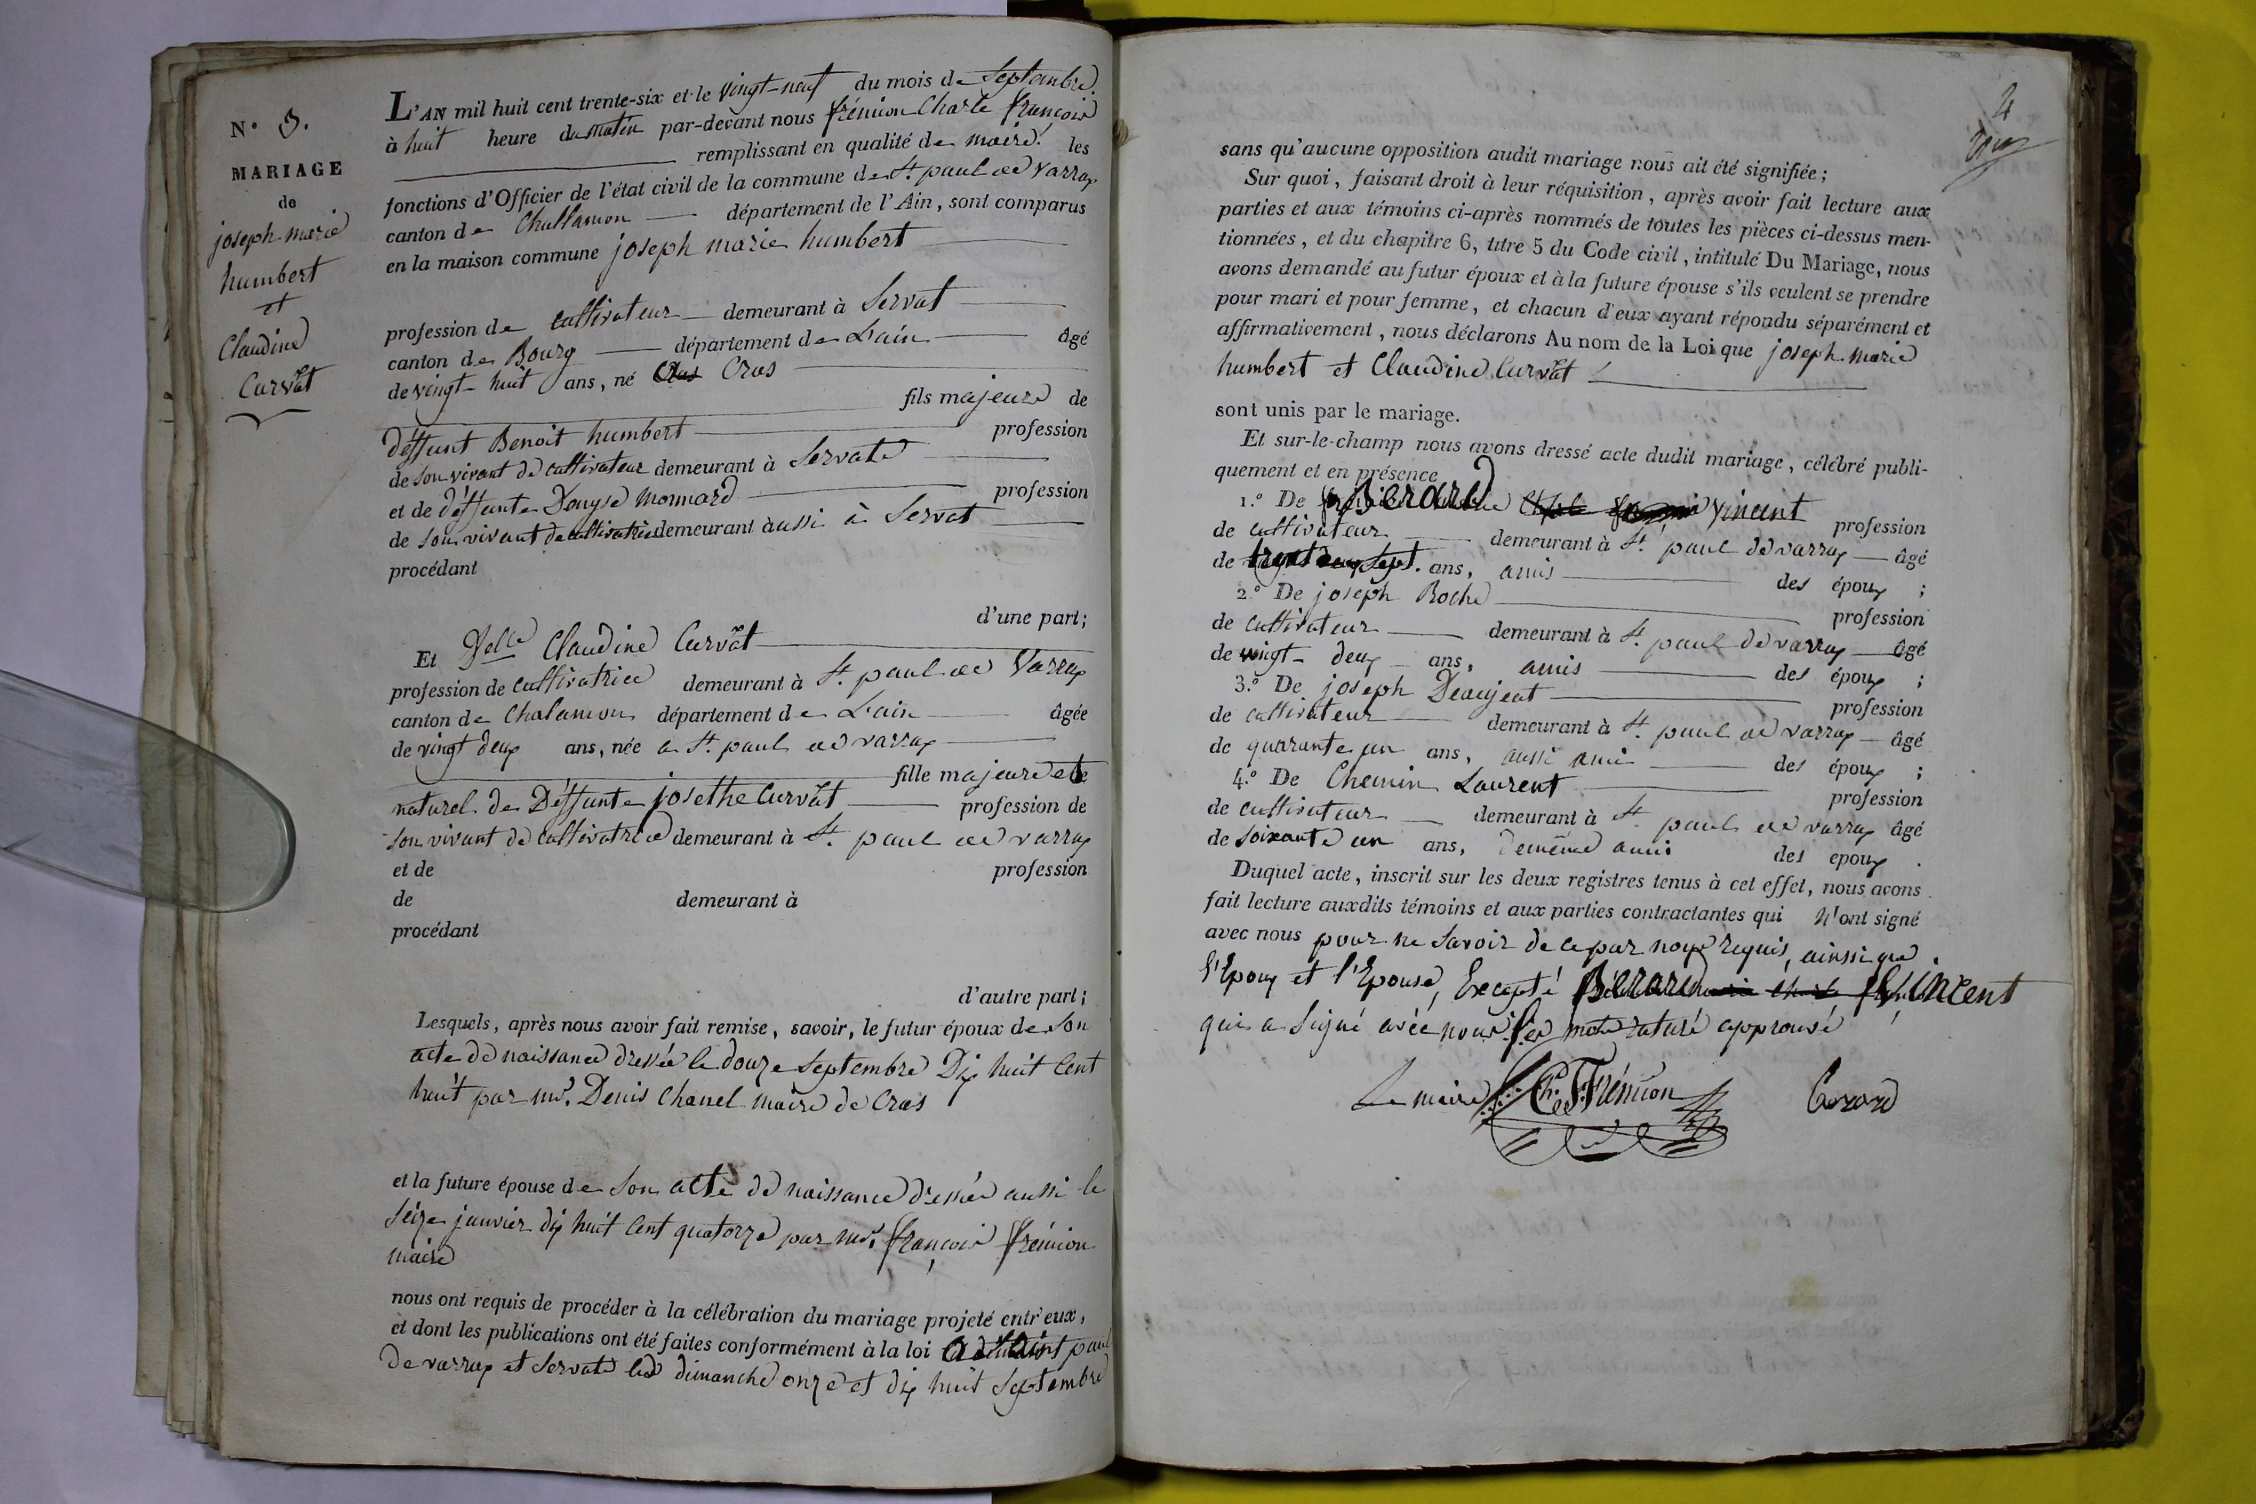 N° 5.
MARIAGE
de
joseph marie
humbert
et
Claudine
Curvat
L'AN mil huit cent trente-six et le vingt-neuf du mois de Septembre.
à huit heure du matin par-devant nous frémion Charle françois
remplissant en qualité de maire les
fonctions d'Officier de l'état civil de la commune de St. paul de Varrax
canton de Challamon département de l'Ain, sont comparus
en la maison commune joseph marie humbert
profession de cultivateur demeurant à Servat
canton de Bourg département de L'ain âgé
de vingt-huit ans, né Cras
fils majeure de
déffunt Benoit humbert profession
de son vivant de cultivateur demeurant à Servate
et de déffunte Denyse Monnard profession
de son vivant de cultivatrice demeurant à aussi à Servat
procédant
d'une part;
Et Delle Claudine Curvat
profession de cultivatrice demeurant à St. paul de Varax
canton de Chalamon département de L'ain âgée
de vingt deux ans, née a St. paul de varrax
fille majeure et
naturel de Déffunte josethe Curvat profession de
son vivant de cultivatrice demeurant à St. paul de varrax
et de profession
de demeurant à
procédant
d'autre part;
Lesquels, après nous avoir fait remise, savoir, le futur époux de son
acte de naissance dressée le douze Septembre Dix huit Cent
huit par mr. Denis Chanel maire de Cras
et la future épouse de son acte de naissance dressée aussi le
seize janvier dix huit Cent quatorze par mr. françois frémion
maire
nous ont requis de procéder à la célébration du mariage projeté entr'eux,
et dont les publications ont été faites conformément à la loi a Saint paul
de varrax et Servate les dimanche onze et dix huit Septembre
4
sans qu'aucune opposition audit mariage nous ait été signifiée;
Sur quoi, faisant droit à leur réquisition, après avoir fait lecture aux
parties et aux témoins ci-après nommés de toutes les pièces ci-dessus men-
tionnées, et du chapitre 6, titre 5 du Code civil, intitulé Du Mariage, nous
avons demandé au futur époux et à la future épouse s'ils veulent se prendre
pour mari et pour femme, et chacun d'eux ayant répondu séparément et
affirmativement, nous déclarons Au nom de la Loi que joseph marie
humbert et Claudine Curvat
sont unis par le mariage.
Et sur-le-champ nous avons dressé acte dudit mariage, célébré publi-
quement et en présence
1.° De Berard vincent profession
de cultivateur demeurant à St. paul de varrax âgé
de Sept. ans, amis des époux ;
2.° De joseph Roche profession
de cultivateur demeurant à St. paul de varrax âgé
de vingt-deux ans, amis des époux ;
3.° De joseph Deaujeat profession
de cultivateur demeurant à St. paul de varrax âgé
de quarante un ans, aussi ami des époux ;
4.° De Chemin Laurent profession
de cultivateur demeurant à St. paul de varrax âgé
de soixante un ans, de même ami des epoux .
Duquel acte, inscrit sur les deux registres tenus à cet effet, nous avons
fait lecture auxdits témoins et aux parties contractantes qui n'ont signé
avec nous pour ne savoir de ce par nous requis, ainsi que
l'Epoux et l'Epouse, Excepté Berard vincent
qui a signé avec nous mots raturé approuvé
Le maire Ch. Frémion Berard